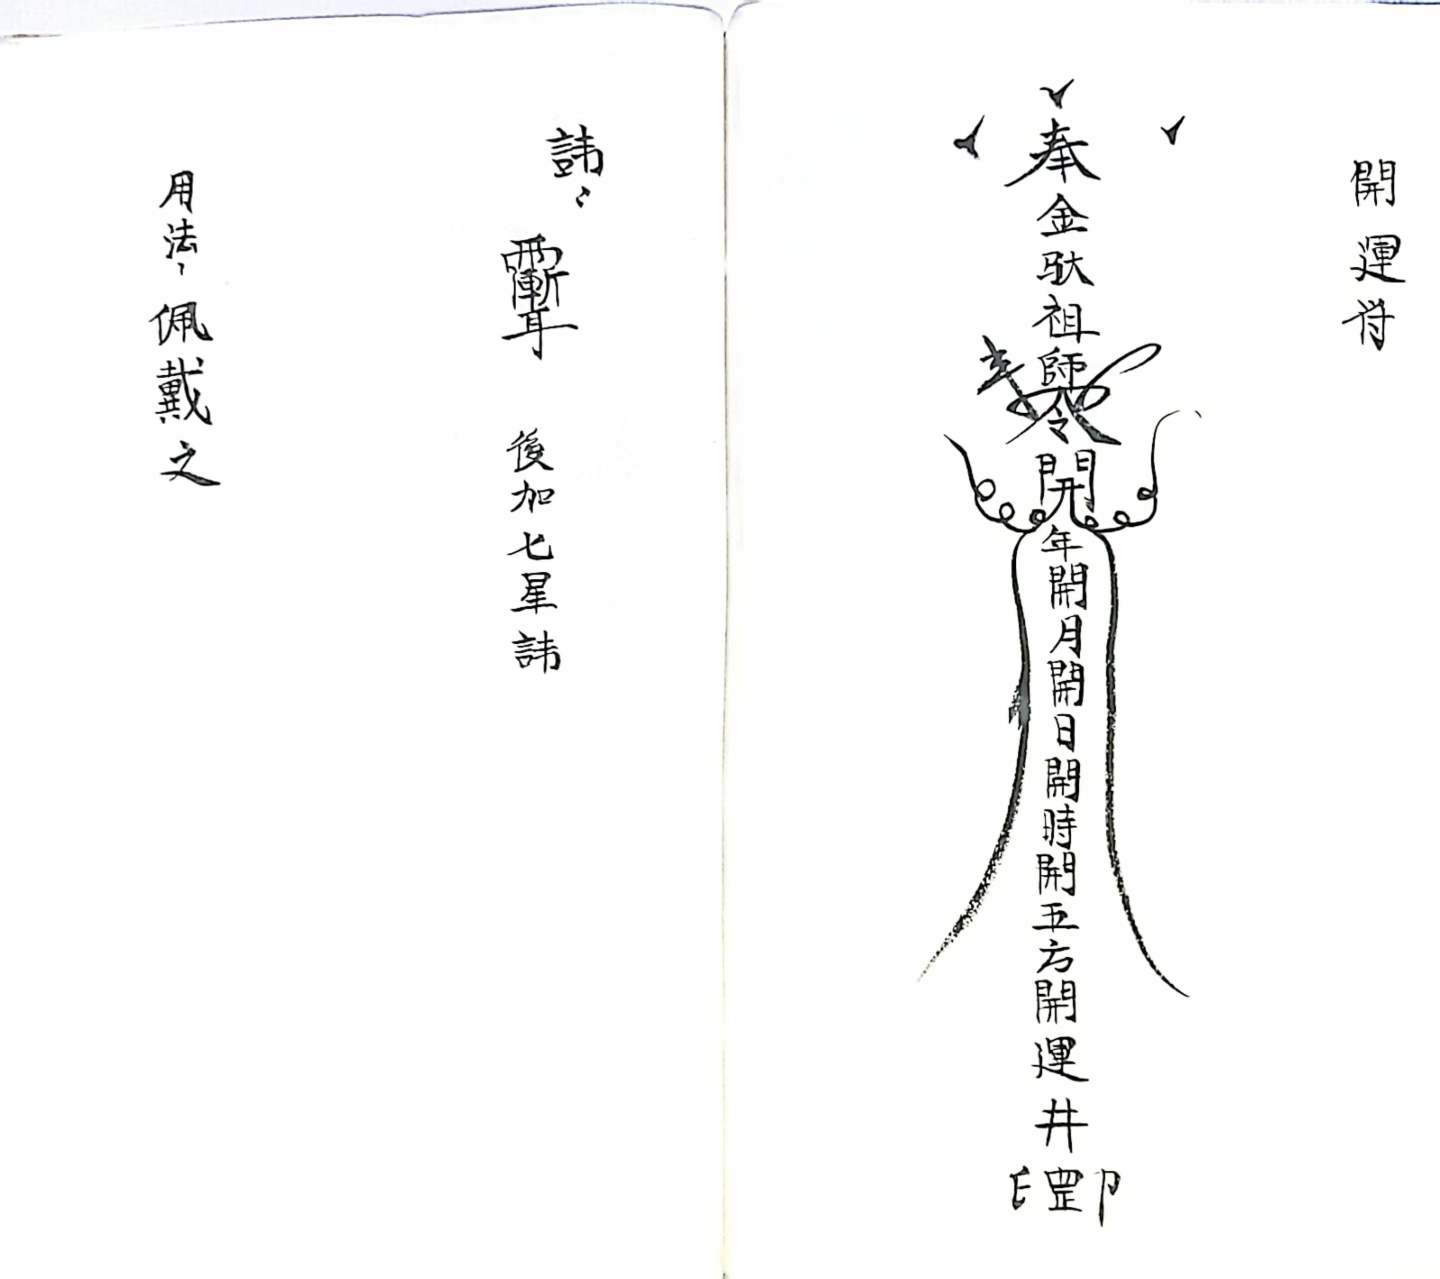 開運符
奉金馱祖師令開年開月開日開時開五方開運井罡印
諱:
後加七星諱
用法、佩戴之